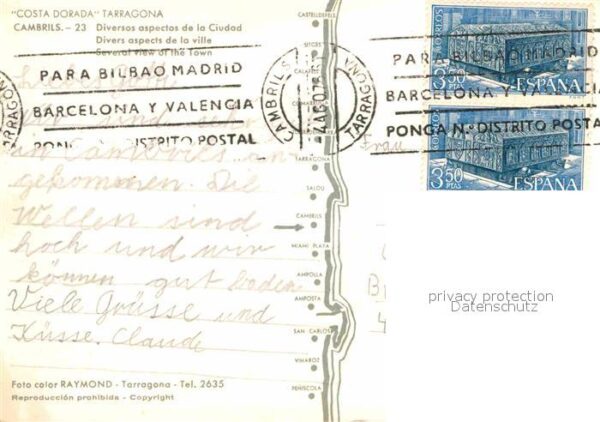 "COSTA DORADA" TARRAGONA
CAMBRILS. - 23 Diversos aspectos de la Ciudad
Divers aspects de la ville
Several view of the Town
PARA BILBAO MADRID
BARCELONA Y VALENCIA
PONGA N.º DISTRITO POSTAL
CAMBRILS
TARRAGONA
PARA BILBAO MADRID
BARCELONA Y VALENCIA
PONGA N.º DISTRITO POSTAL
CORREOS
3,50 PTAS
ESPAÑA
3,50 PTAS
ESPAÑA
TARRAGONA
sind
in Cambrils an-
gekommen. Die
Wellen sind
hoch und wir
können gut baden
Viele Grüsse und
Küsse. Claude
Frau
CASTELLDEFELS
SITGES
TARRAGONA
SALOU
CAMBRILS
MIAMI PLAYA
AMPOLLA
AMPOSTA
SAN CARLOS
VINAROZ
PEÑISCOLA
privacy protection
Datenschutz
Foto color RAYMOND - Tarragona - Tel. 2635
Reproducción prohibida - Copyright